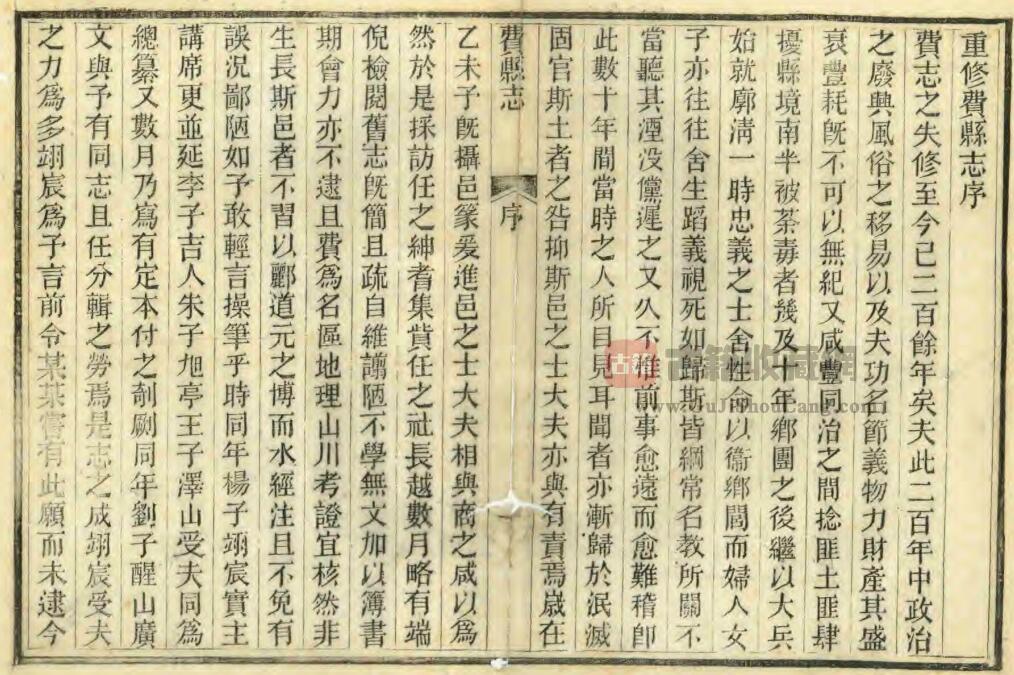 重修費縣志序
費志之失修至今已二百餘年矣夫此二百年中政治
之廢興風俗之移易以及夫功名節義物力財產其盛
衰豐耗旣不可以無紀又咸豐同治之間捻匪土匪肆
擾縣境南半被荼毒者幾及十年鄉團之後繼以大兵
始就廓淸一時忠義之士舍性命以衞鄉閭而婦人女
子亦往往舍生蹈義視死如歸斯皆綱常名教所關不
當聽其湮没儻遲之又久不惟前事愈遠而愈難稽卽
此數十年間當時之人所目見耳聞者亦漸歸於泯滅
固官斯土者之咎抑斯邑之士大夫亦與有責焉歲在
費縣志
序
乙未予旣攝邑篆爰進邑之士大夫相與商之咸以爲
然於是採訪任之紳耆集貲任之社長越數月略有端
倪檢閱舊志旣簡且疏自維譾陋不學無文加以簿書
期會力亦不逮且費爲名區地理山川考證宜核然非
生長斯邑者不習以酈道元之博而水經注且不免有
誤況鄙陋如予敢輕言操筆乎時同年楊子翊宸實主
講席更並延李子吉人朱子旭亭王子澤山受夫同爲
總纂又數月乃寫有定本付之剞劂同年劉子醒山廣
文與予有同志且任分輯之勞焉是志之成翊宸受夫
之力爲多翊宸爲予言前令某某嘗有此願而未逮今
古籍
古籍收藏網
www.GuJiShouCang.com